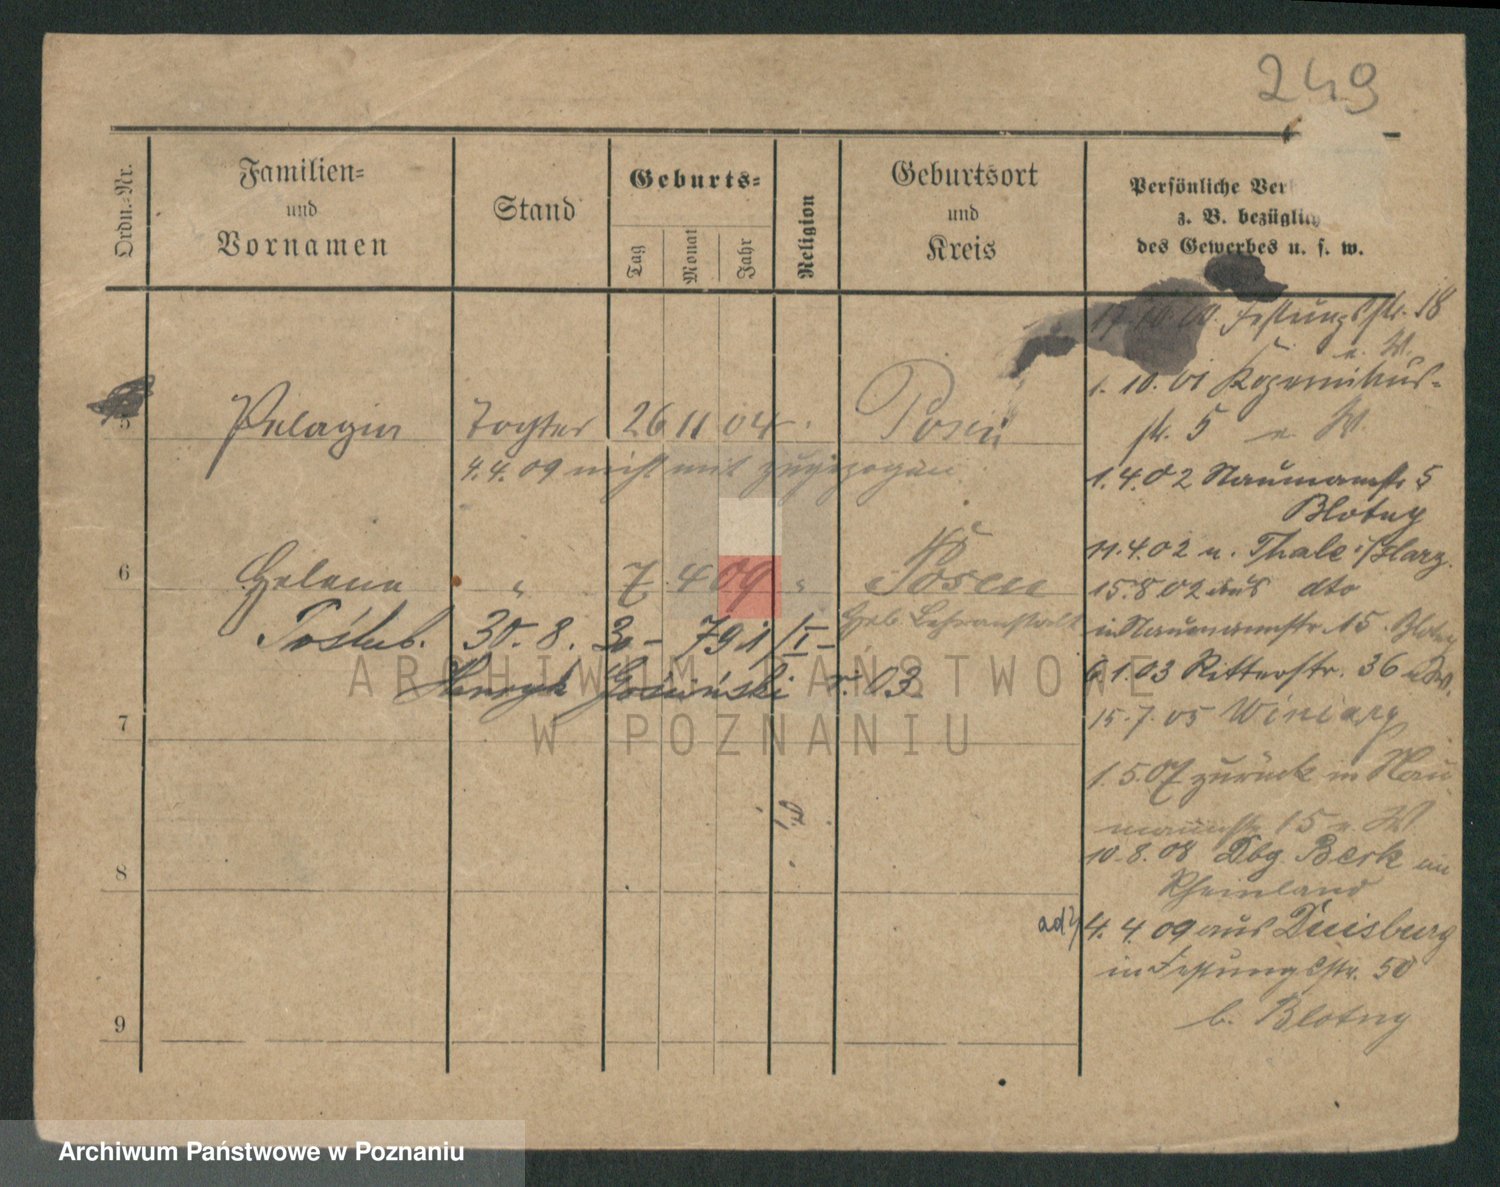 249
Ordn.-Nr.
Familien-
und
Vornamen
Stand
Geburts-
Tag
Monat
Jahr
Religion
Geburtsort
und
Kreis
Persönliche Ver
z. B. bezüglich
des Gewerbes u. s. w.
5
Pelagia Tochter 26 11 04 Posen
4.4.09 nicht mit zugezogen
6
Helena " 7. 4 09 " Posen
Heb. Lehranstalt
Poślub. 30. 8. 30 -
Henryk r. 03
7
8
9
17.10.00. Festungsstr. 18
1. 10. 01 Kopernikus-
str. 5
1. 4. 02 Naumannstr 5
Blotny
11. 4. 02 n. Thale i/Harz.
15. 8 02 aus dto
in Naumannstr. 15. Blotny
6. 1. 03 Ritterstr. 36
15. 7. 05 Winiary
1. 5. 07 zurück in Nau
mannstr 15
10. 8. 08 Dbg Berk im
Rheinland
4. 4. 09 aus Duisburg
in Festungsstr. 50
b. Blotny
ARCHIWUM PAŃSTWOWE
W POZNANIU
Archiwum Państwowe w Poznaniu